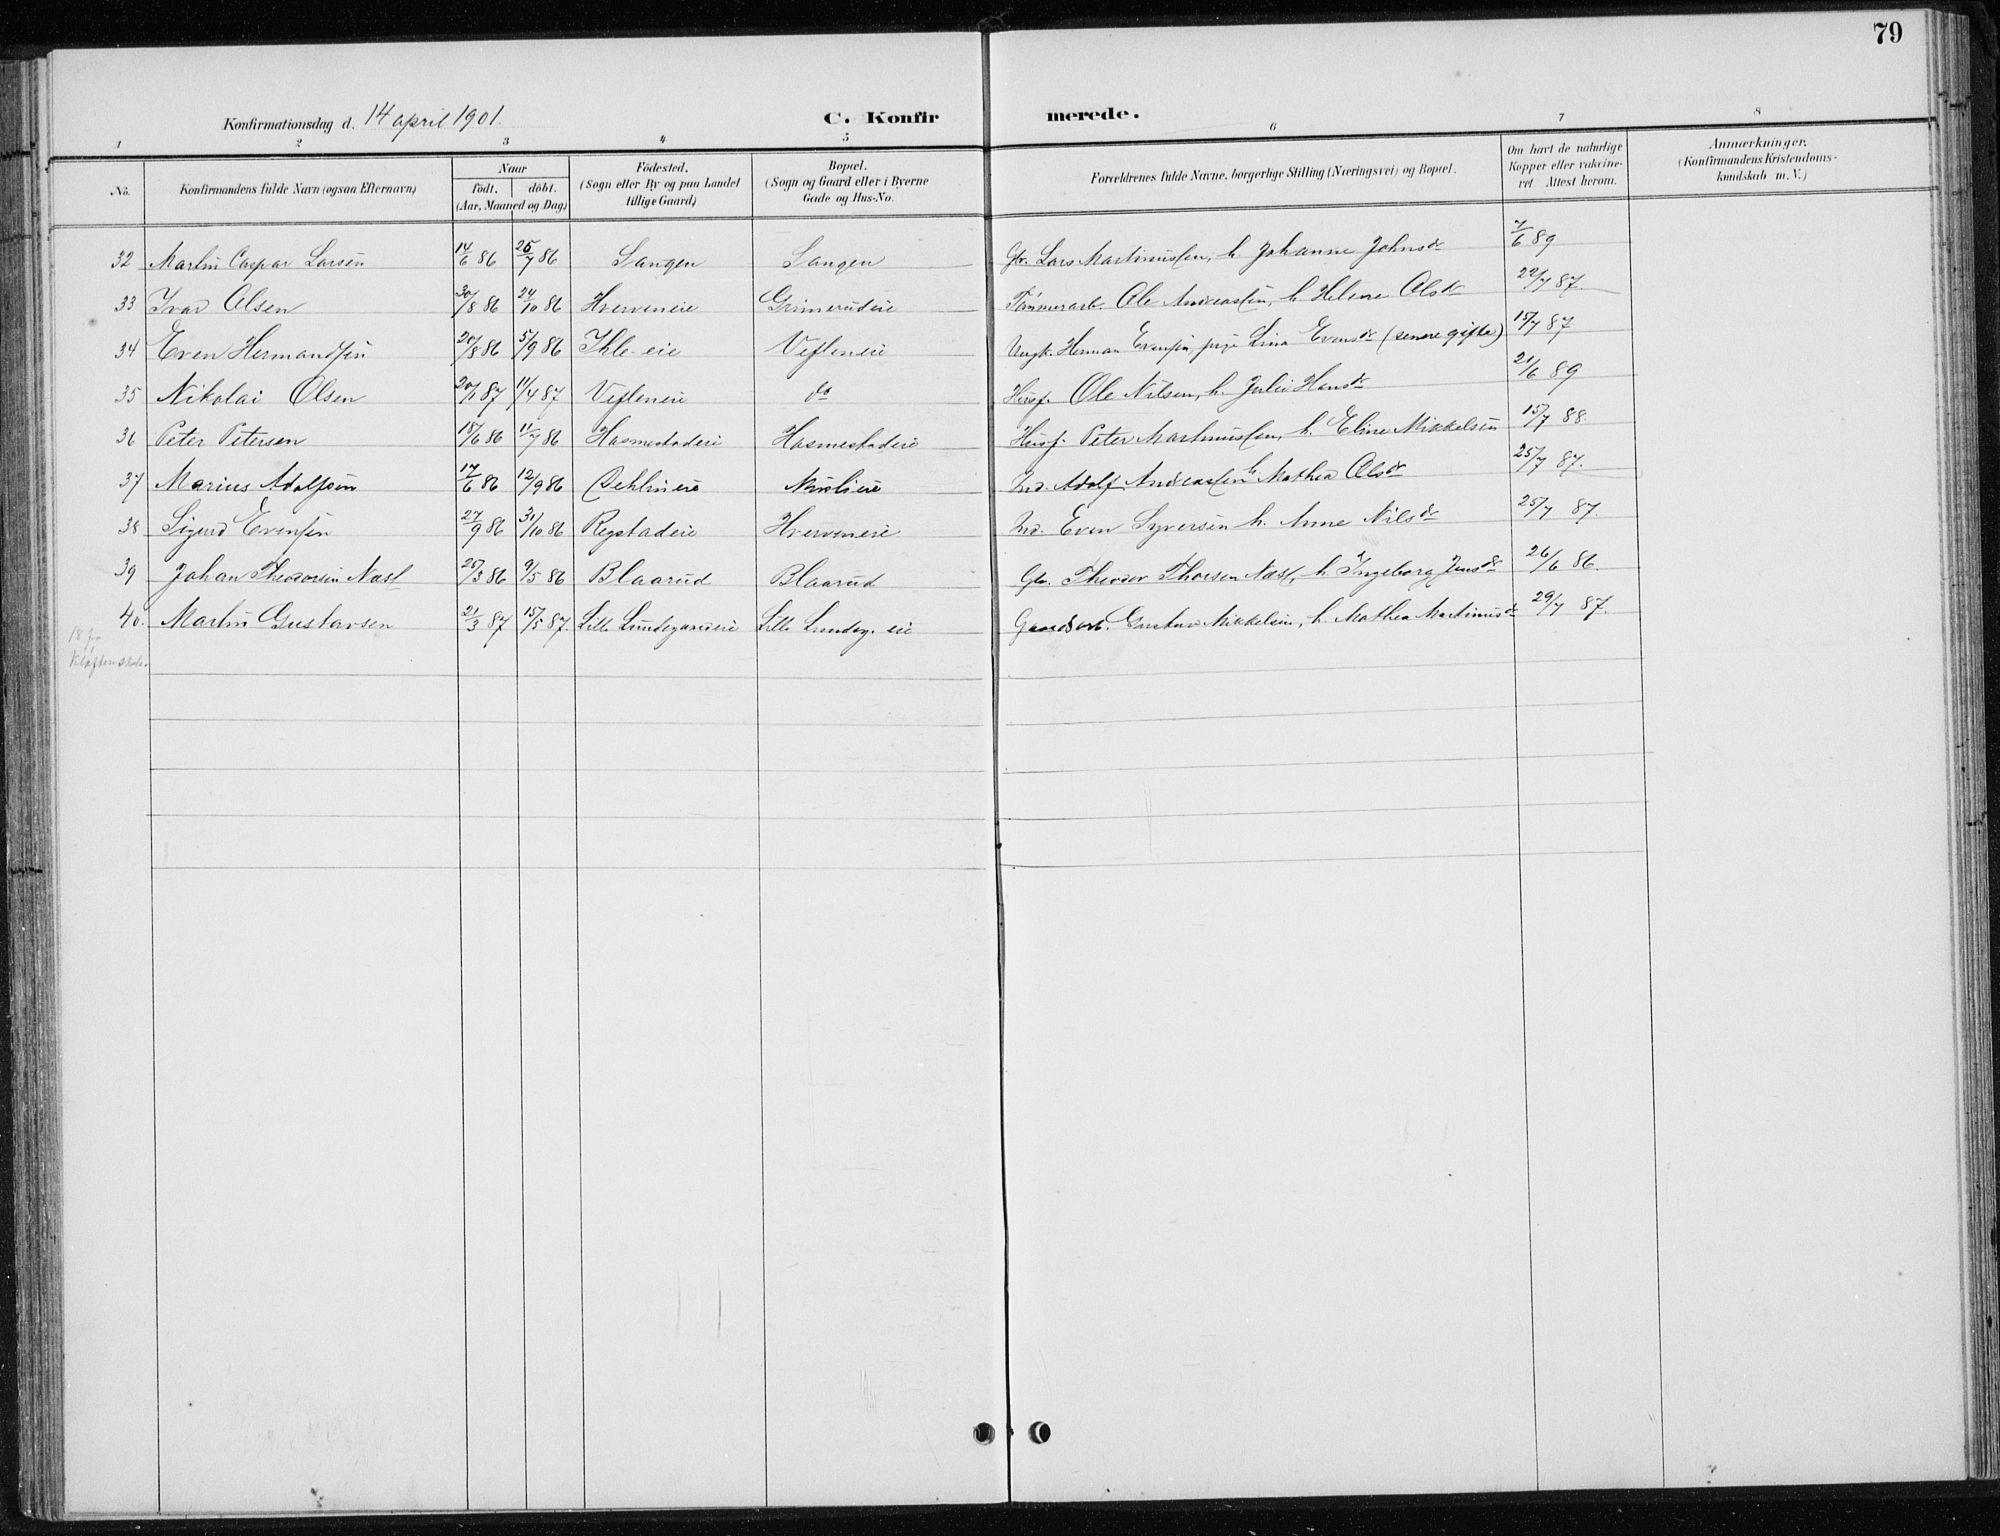 79
Konfirmationsdag d. 14 april 1901.
C. Konfirmerede.
1 2 3 4 5 6 7 8
No.
Konfirmandens fulde Navn (ogsaa Efternavn)
Naar
födt. döbt.
(Aar, Maaned og Dag)
Födested.
(Sogn eller By og paa Landet
tillige Gaard)
Bopæl.
(Sogn og Gaard eller i Byerne
Gade og Hus-No.
Forældrenes fulde Navne, borgerlige Stilling (Næringsvei) og Bopæl.
Om havt de naturlige
Kopper eller vakcine-
ret. Attest herom.
Anmærkninger,
(Konfirmandens Kristendoms-
kundskab m. V.)
32 Martin Caspar Larsen 14/6 86 25/7 86 Sangen Sangen Gbr. Lars Martinussen, h. Johanne Johnsdr 7/6 89
33 Ivar Olsen 30/8 86 24/10 86 Hverveneie Grimerudeie Tømmerarb. Ole Andreassen, h. Helene Olsdr 22/7 87.
34 Even Hermandsen 20/8 86 5/9 86 Ihle-eie Vefleneie Ungk. Herman Evensen, pige Lina Evensdr (senere gifte) 15/7 87
35 Nikolai Olsen 20/1 87 11/4 87 Vefleneie do Husf. Ole Nilsen, h. Julie Hansdr 21/6 89
36 Peter Petersen 15/6 86 11/7 86 Hasmestadeie Hasmestadeie Husf. Peter Martinussen, h. Eline Mikkelsen 15/7 88.
37 Marius Adolfsen 17/6 86 12/9 86 Ind. Adolf Andreassen h. Mathea Olsdr 25/7 87.
38 Sigurd Evensen 27/9 86 31/10 86 Regstadeie Hverveneie Ind. Even Syversen h. Anne Nilsdr 25/7 87.
39 Johan Theodorsen Næss 25/3 86 9/5 86 Blaarud Blaarud Gbr. Theodor Thorsen Næss, h. Ingeborg Jensdr 26/6 86.
40. Martin Gustavsen 21/3 87 15/5 87. Lille Lundegaardeie Lille Lundeg. eie Gaardsarb. Gustav Mikkelsen, h. Mathea Martinusdr 29/7 87.
18 fra
Kløften skole